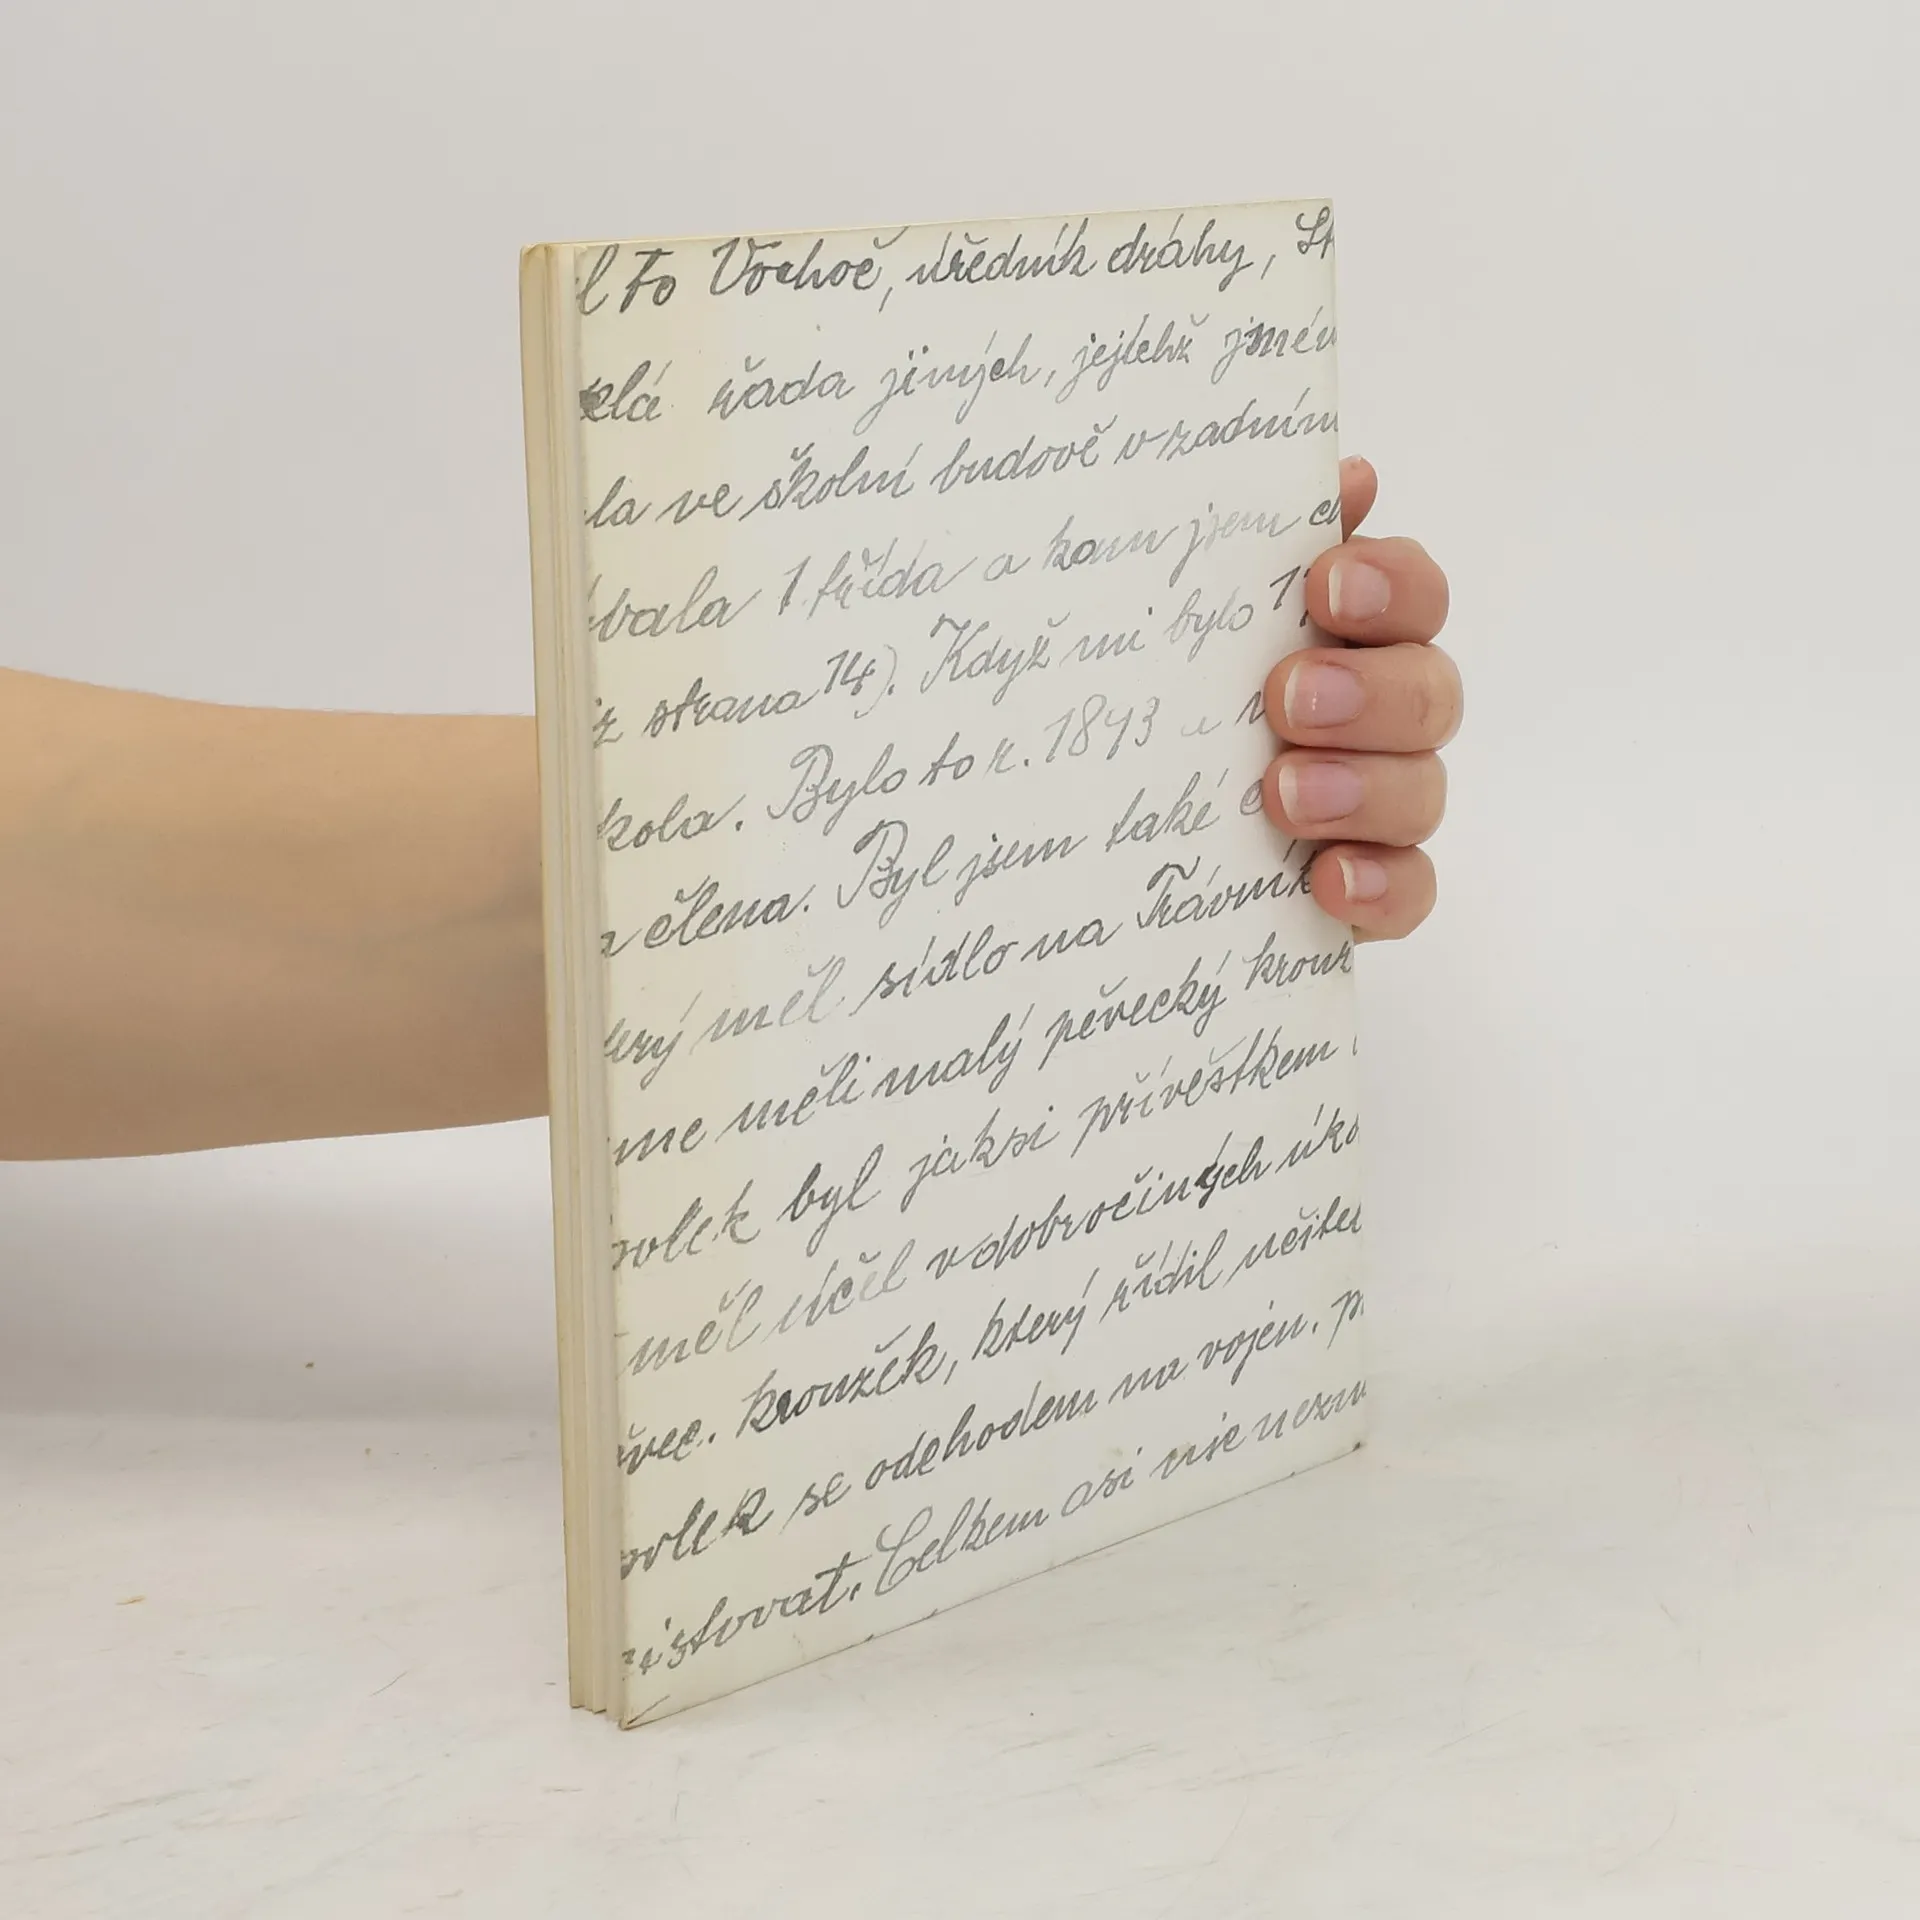 l to Vochoč, úředník dráhy, St
elá řada jiných, jejichž jmén
la ve školní budově v zadním
vala 1 třída a kam jsem ch
z strana 14). Když mi bylo 17
kola. Bylo to r. 1893 a v
a člena. Byl jsem také č
erý měl sídlo na Trávník
me měli malý pěvecký krouž
olek byl jaksi přívěškem
měl účel v dobročiných úko
ěvec. kroužek, který řídil učitel
olek se odchodem na vojen. p
istovat. Celkem asi nic nezn